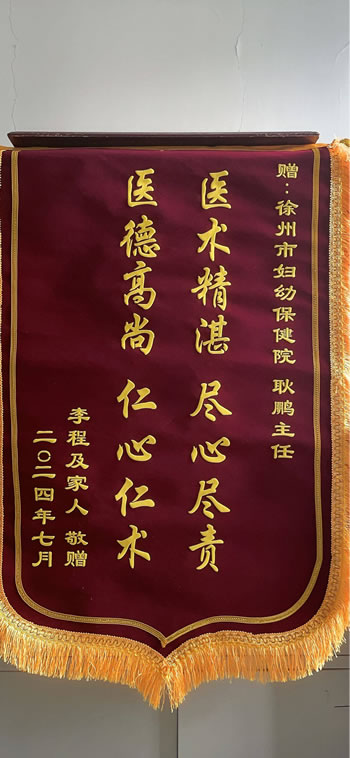 赠：徐州市妇幼保健院 耿鹏主任
医术精湛 尽心尽责
医德高尚 仁心仁术
李程及家人 敬赠
二〇二四年七月